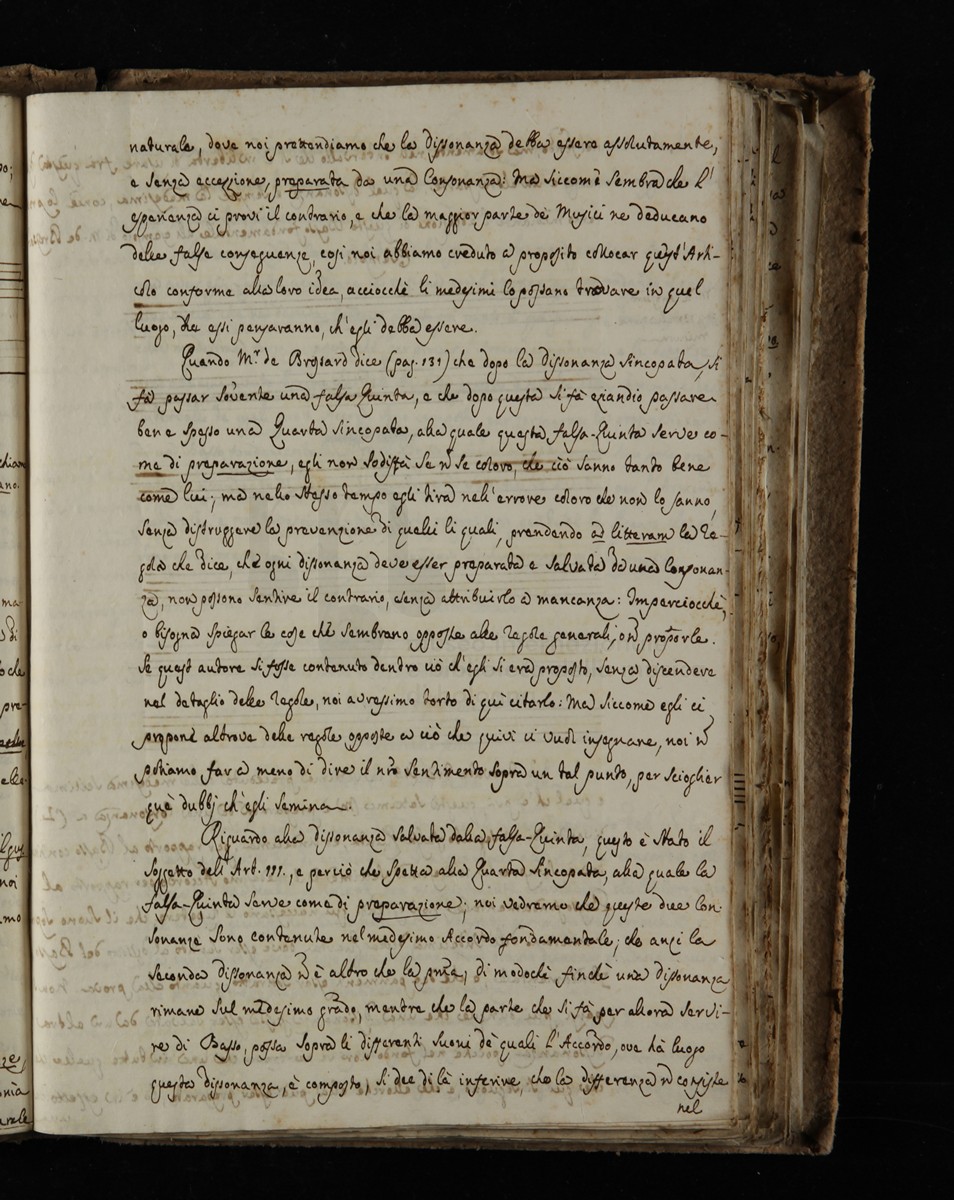 naturale, dove noi pretendiamo che la dissonanza debba essere assolutamente,
e senza eccezzione, preparata da una Consonanza: Ma siccom'è sembra che l'
esperienza ci provi il contrario, e che la maggior parte de Musici ne deducano
delle false conseguenze, così noi abbiamo creduto a proposito collocar quest'Arti-
colo conforme alla loro idea, acciocchè li medesimi lo possano trovare in quel
luogo, che essi penseranno, ch'egli debba essere.
Quando M.r de Brossard dice (pag. 131) che dopo la dissonanza sincopata, si
fà passar sovente una falsa Quinta, e che dopo questa si fà eziandio passare
bene spesso una Quarta sincopata, alla quale questa falsa-Quinta serve co-
me di preparazione, egli non sodisfà se ñ se coloro, che ciò sanno tanto bene
come lui; ma nello stesso tempo egli tira nell'errore coloro che non lo sanno,
senza distruggere la prevenzione di quelli li quali, prendendo ad litteram la Re-
gola che dice, che ogni dissonanza deve esser preparata e salvata da una Consonan-
za, non possono sentire il contrario, senza attribuirlo a mancanza: Imperciocchè,
o bisogna spiegar le cose che sembrano opposte alle Regole generali, o ñ proporle.
Se quest'autore si fosse contenuto dentro ciò ch'egli si era proposto, senza discendere
nel detaglio delle Regole, noi avressimo torto di quì citarlo: Ma siccome egli ci
propone altrove delle regole opposte a ciò che quivi ci vuol insegnare, noi ñ
possiamo far a meno di dire il nr̃o sentimento sopra un tal punto, per sciogliere
què dubbj ch'egli semina.
Riguardo alla dissonanza salvata dalla falsa-Quinta, questo è stato il
soggetto dell'Art. III., e perciò che spetta alla Quarta sincopata, alla quale la
falsa-Quinta serve come di preparazione; noi vedremo che queste due Con-
sonanze sono contenute nel medesimo Accordo fondamentale; che anzi la
seconda dissonanza ñ è altro che la pr̃ma; di modochè finchè una dissonanza
rimane sul medesimo grado, mentre che la parte che si fà per allora servi-
re di Basso, passa sopra li differenti suoni dè quali l'Accordo, ove hà luogo
questa dissonanza, è composto, si dee di là inferire, che la differenza ñ consiste
nel